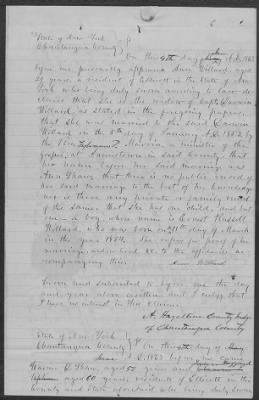 State of New York
Chautauqua County
On this 9th day
before me personally appeared Ann Willard, aged
years, a resident of Ellicott in the State of New
York who being duly sworn according to law de-
clares that she is the widow of Capt. Darwin
Willard, as stated in the foregoing
that she was married to the said Darwin
Willard on the 8th day of January A.D. 1852 by
the Rev. Sylvanus Marvin, a minister of the
gospel, at Jamestown in said County that
her name before her said marriage was
Ann Thayer that there is no public record of
her said marriage to the best of her knowledge
nor is there any private or family record
of the same, that she has one child, and but
one - a boy, whose name is Ernest Russell
Willard, who was born on day of March
in the year She refers for proof of her
marriage, widowhood &c to the affidavits ac-
companying this.
Ann Willard
Sworn and subscribed to before me the day
and year above written and I certify that
I have no interest in this claim.
A. Hazeltine County Judge
of Chautauqua County
State of New York
Chautauqua County
On this 9th day of
June A.D. 1863 before me came
aged 50 years and
aged 60 years, residents of Ellicott in the
County and State aforesaid who being duly sworn